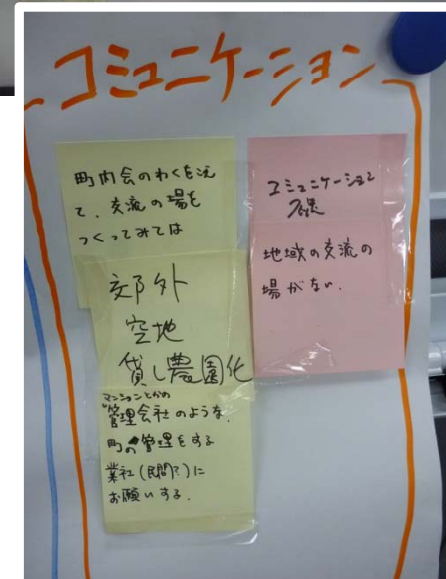 コミュニケーション
町内会のわくを越え
て、交流の場を
つくってみては
郊外
空地
貸し農園化
マンションとかの
管理会社のような、
町の管理をする
業社(民間?)に
お願いする.
コミュニケーション
地域の交流の
場がない.